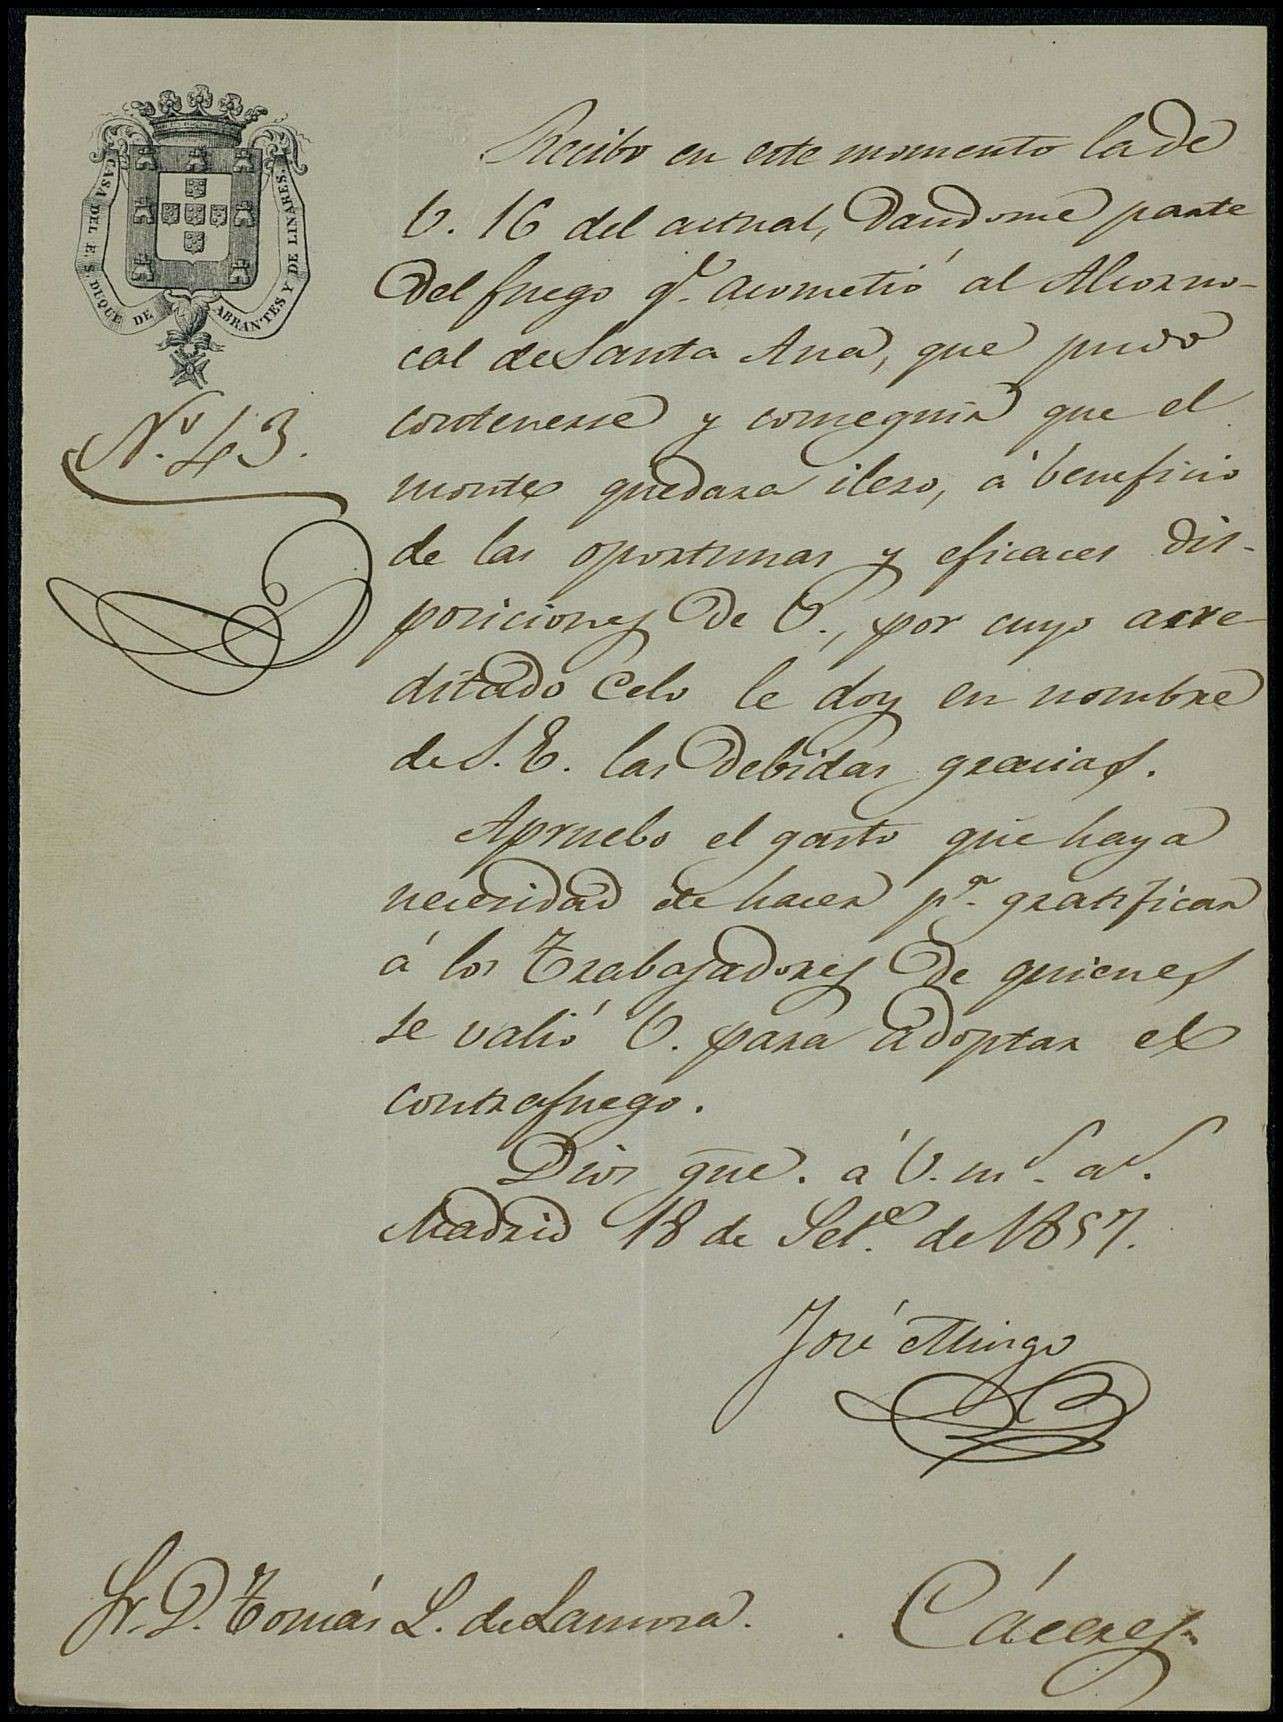 CASA DEL E. S. DUQUE DE ABRANTES Y DE LINARES.
Nº. 43.
Recibo en este momento la de
V. 16 del actual, dandome parte
del fuego q.e acometió al Alcorno-
cal de Santa Ana, que pudo
contenerse y conseguir que el
monte quedara ileso, á beneficio
de las oportunas y eficaces dis-
posiciones de V., por cuyo acre-
ditado celo le doy en nombre
de S. E. las debidas gracias.
Apruebo el gasto que haya
necesidad de hacer p.a gratificar
á los trabajadores de quienes
se valió V. para adoptar el
contrafuego.
Dios gue. á V. m.s a.s.
Madrid 18 de Set.e de 1857.
José Mingo
Sr. D. Tomás L. de Lamora. . Cáceres